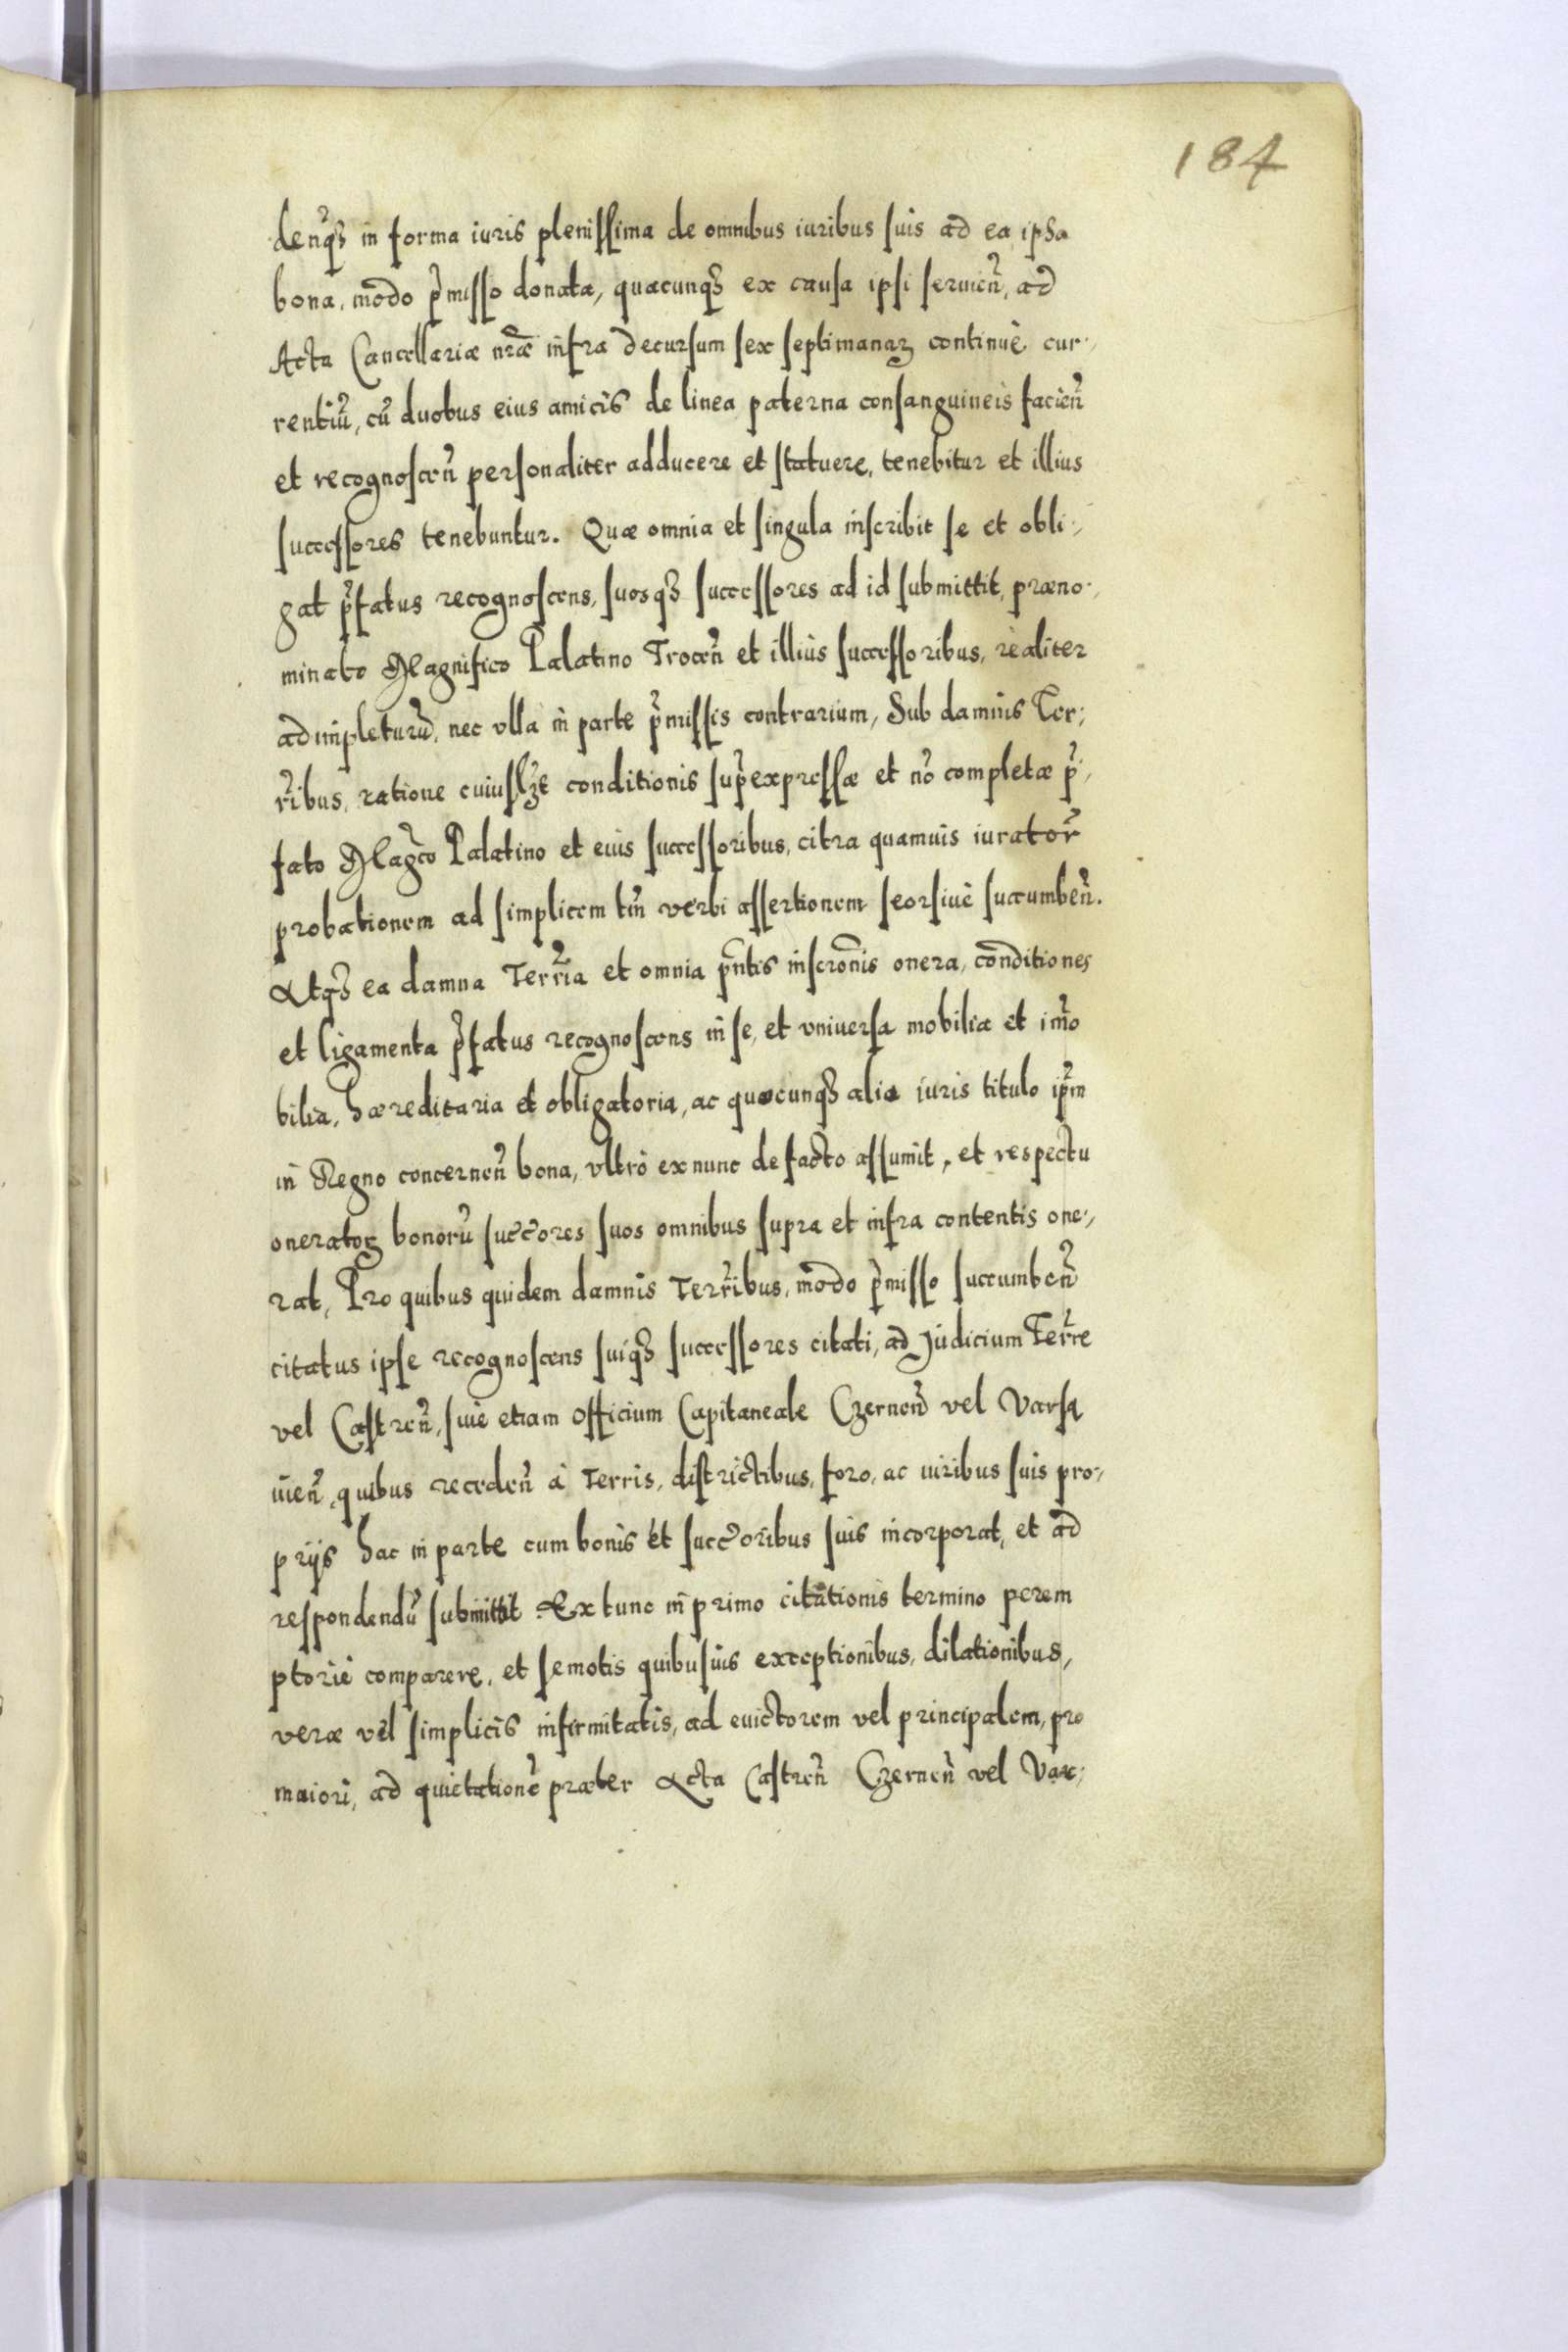 184
denq₃ in forma iuris plenissima de omnibus iuribus suis ad ea ipsa
bona, modo p̃misso donata, quacunq₃ ex causa ipsi seruieñ, ad
Acta Cancellariæ nr̃æ infra decursum sex septimanaꝝ continuè cur-,
rentiũ, cũ duobus eius amicis de linea paterna consanguineis facieñ
et recognosceñ personaliter adducere et statuere, tenebitur et illius
successores tenebuntur. Quæ omnia et singula inscribit se et obli-,
gat p̃fatus recognoscens, suosq₃ successores ad id submittit, præno-,
minato Magnifico Palatino Troceñ et illius successoribus, realiter
adimpleturũ, nec vlla in parte p̃missis contrarium, Sub damnis Ter-,
r̃ibus, ratione cuiusl₃t conditionis sup̃expressæ et nõ completæ p̃-,
fato Mag̃co Palatino et eius successoribus, citra quamuis iurator̃
probationem ad simplicem tm̃ verbi assertionem seorsiuè succumbeñ.
Atq₃ ea damna Terr̃ia et omnia p̃ntis inscrõnis onera, conditiones
et ligamenta p̃fatus recognoscens in se, et vniuersa mobilia et im̃o
bilia, hæreditaria et obligatoria, ac quocunq₃ alio iuris titulo ip̃m
in Regno concerneñ bona, vltrò ex nunc de facto assumit, et respectu
oneratoꝝ bonorũ succ̃ores suos omnibus supra et infra contentis one-,
rat, Pro quibus quidem damnis Terr̃ibus, modo p̃misso succumbeñ
citatus ipse recognoscens suiq₃ successores citati, ad Judicium Terr̃e
vel Castreñ, siue etiam Officium Capitaneale Czerneñ vel Varsa
uieñ, quibus recedeñ à Terris, districtibus, foro, ac iuribus suis pro-,
prijs hac in parte cum bonis et succ̃oribus suis incorporat, et ad
respondendũ submittit. Ex tunc in primo citationis termino perem
ptoriè comparere, et semotis quibusuis exceptionibus, dilationibus,
veræ vel simplicis infirmitatis, ad euictorem vel principalem, pro
maiori, ad quietationẽ præter Acta Castreñ Czerneñ vel Var-,